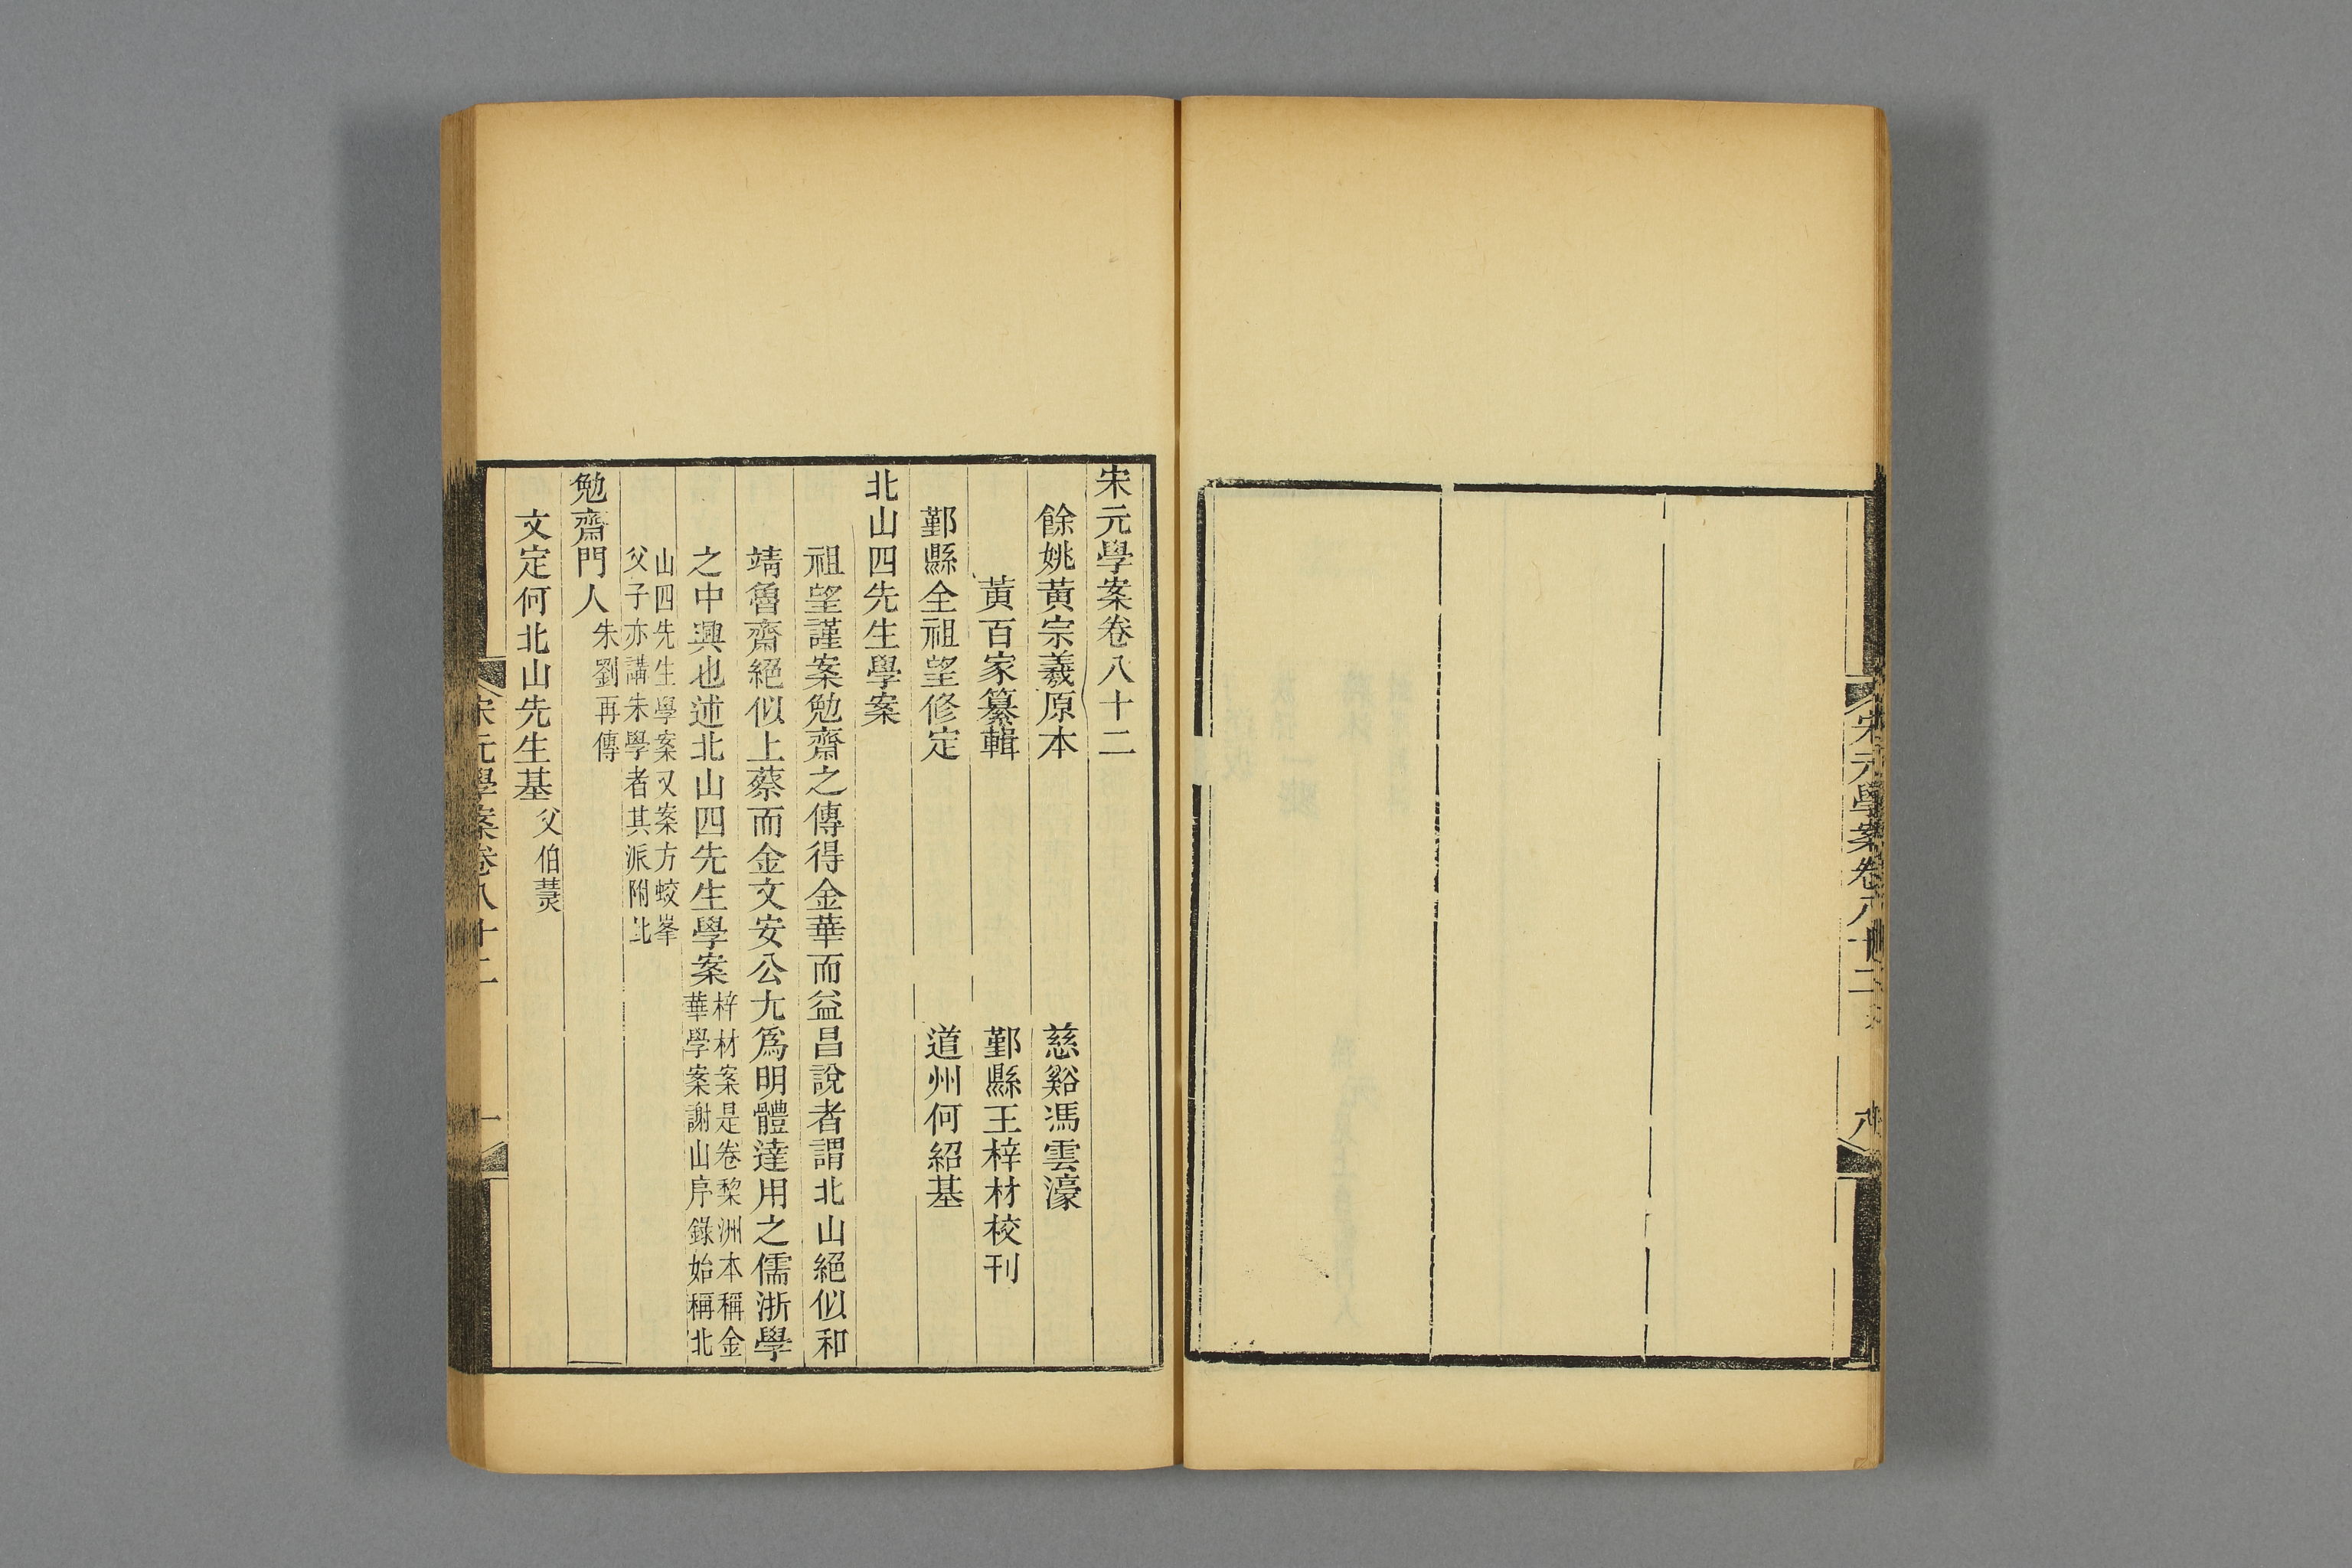 宋元學案卷八十二
八
宋元學案卷八十二
餘姚黃宗羲原本　慈谿馮雲濠
黃百家纂輯　鄞縣王梓材校刊
鄞縣全祖望修定　道州何紹基
北山四先生學案
祖望謹案勉齋之傳得金華而益昌說者謂北山絕似和
靖魯齋絕似上蔡而金文安公尤爲明體達用之儒浙學
之中興也述北山四先生學案梓材案是卷棃洲本稱金
華學案謝山序錄始稱北
山四先生學案又案方蛟峯
父子亦講朱學者其派附北
勉齋門人朱劉再傳
文定何北山先生基父伯慧
宋元學案卷八十二
一